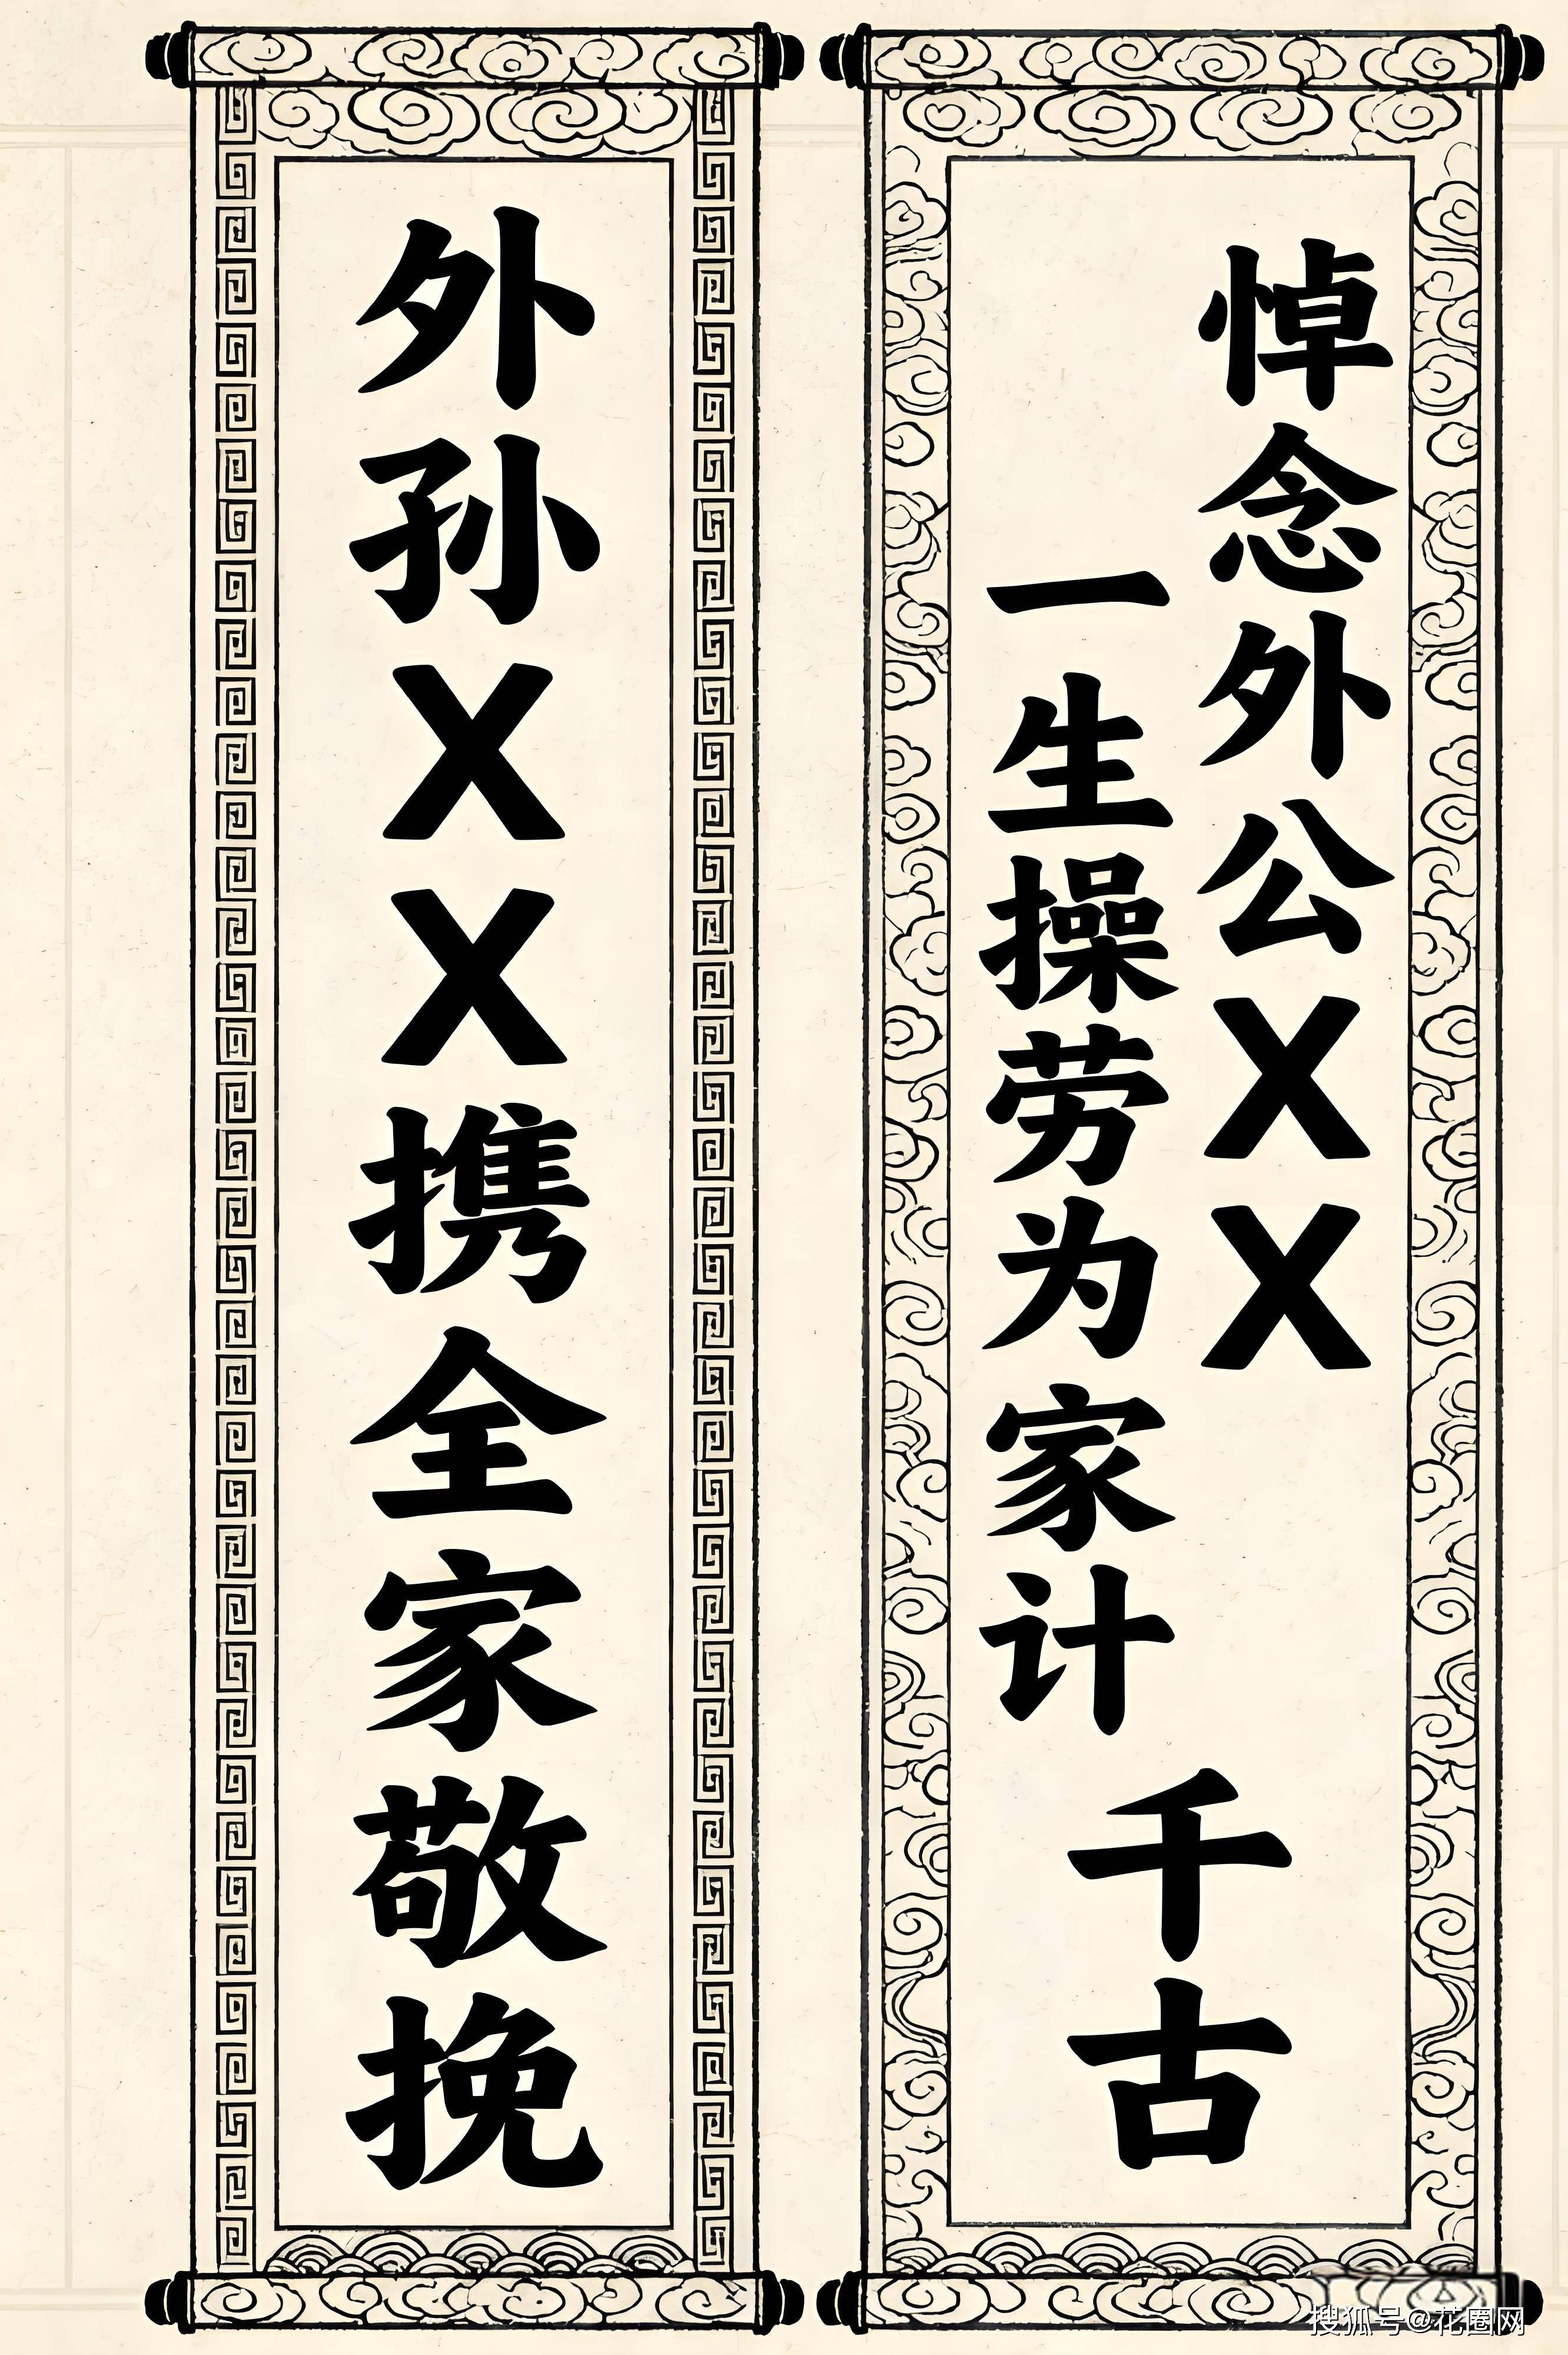 悼念外公XX
一生操劳为家计
千古
外孙XX携全家敬挽
搜狐号@花圈网